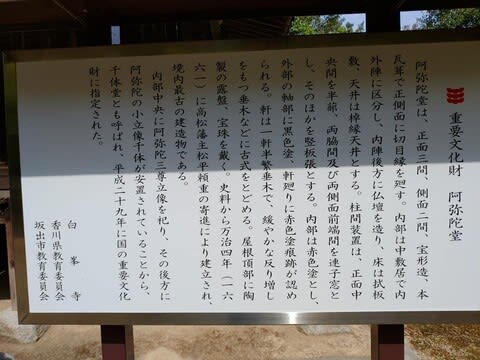 重要文化財　阿弥陀堂
阿弥陀堂は、正面三間、側面二間、宝形造、本
瓦葺で正側面に切目縁を廻す。内部は中敷居で内
外陣に区分し、内陣後方に仏壇を造り、床は拭板
敷、天井は棹縁天井とする。柱間装置は、正面中
央間を半蔀、両脇間及び両側面前端間を連子窓と
し、そのほかを竪板張とする。内部は赤色塗とし、
外部の軸部に黒色塗、軒廻りに赤色塗痕跡が認め
られる。軒は一軒半繁垂木で、緩やかな反り増し
をもつ垂木などに古式をとどめる。屋根頂部に陶
製の露盤、宝珠を戴く。史料から万治四年（一六
六一）に高松藩主松平頼重の寄進により建立され、
境内最古の建造物である。
内部中央に阿弥陀三尊立像を祀り、その後方に
阿弥陀の小立像千体が安置されていることから、
千体堂とも呼ばれ、平成二十九年に国の重要文化
財に指定された。
白峯寺
香川県教育委員会
坂出市教育委員会